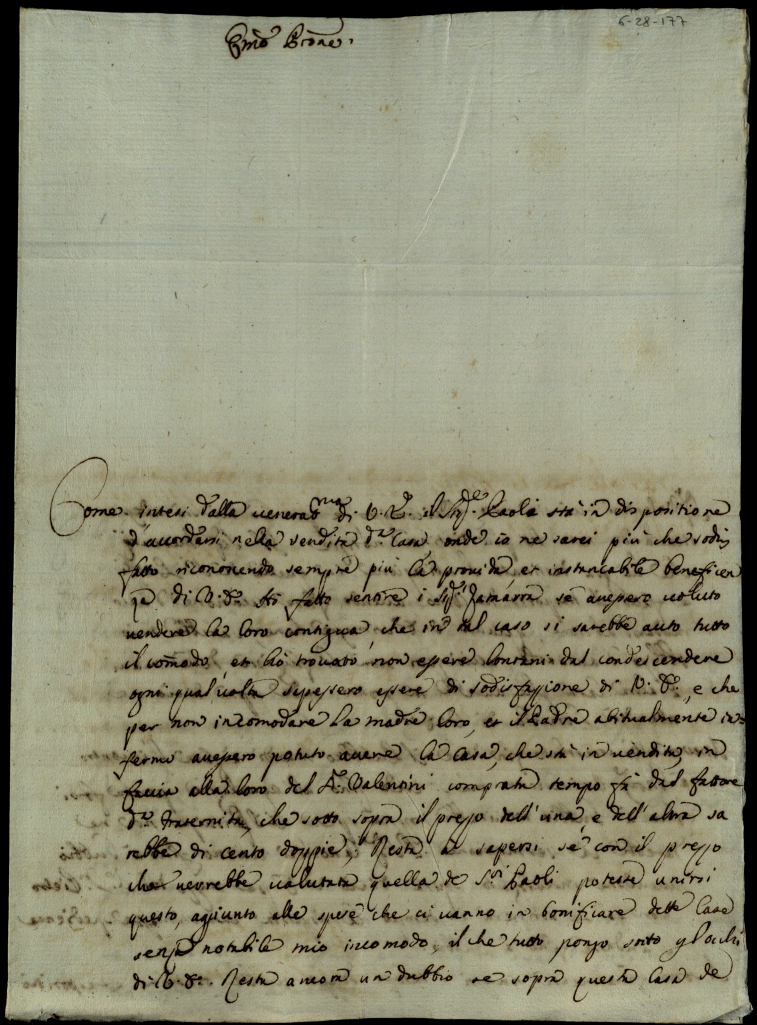 6-28-177
Em̃o Prōne.
Come intesi dalla venerat.ma di V. E. il Sig.le Paoli stà in dispositione
d'accordarsi nella vendita d.a Casa onde io ne sarei più che sodis
fatto riconoscendo sempre più la provida et instancabile beneficen
za di V. E. Hò fatto sentire i Sig.ri Zamarra se avessero voluto
vendere la loro contigua che in tal caso si sarebbe auto tutto
il com̃odo, et hò trovato non essere lontani dal condescendere
ogni qual volta sapessero essere di sodisfazione di V. E., e che
per non incomodare la madre loro, et il Padre abitualmente in
fermo avessero potuto avere la casa, che stà in vendita, in
faccia alla loro del Valentini comprata tempo fà dal fattore
d.a fraternita, che sotto sopra il prezzo dell'una, e dell'altra sa
rebbe di cento doppie; Resta a sapersi se con il prezzo
che verrebbe valutata quella de S.ri Paoli potesse unirsi
questo, aggiunto alle spese che ci vanno in bonificare dette Case
senza notabile mio incomodo, il che tutto pongo sotto gl'ochi
di V. E. Resta ancora un dubbio se sopra questa Casa de